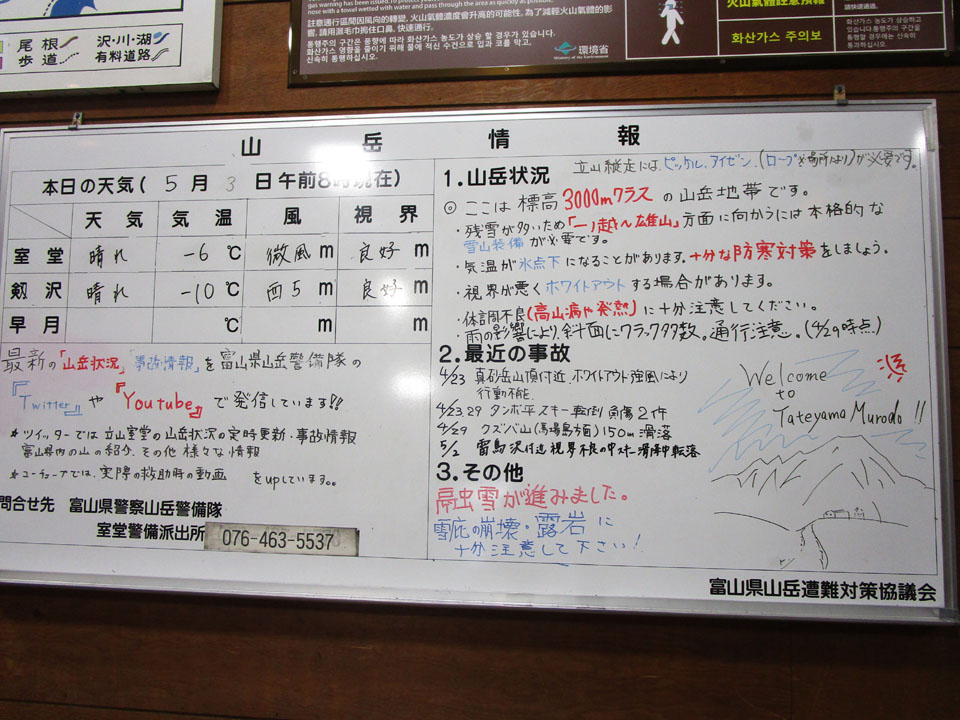 gas warning has been issued. To protect you
nose with a towel wetted with water and pass through the area as quickly as possible.
註意通行區間因風向的轉變, 火山氣體濃度會升高的可能性。為了減輕火山氣體的影
響, 請用濕毛巾捂住口鼻, 快速通行。
통행주의 구간은 풍향에 따라 화산가스 농도가 상승하는 경우가 있습니다.
화산가스 영향을 줄이기 위해 물에 적신 수건으로 입과 코를 막고,
신속히 통행하십시오.
環境省
Ministry of the Environment
火山氣體註意預報
請快速通過。
화산가스 주의보
화산가스 농도가 상승하고
있습니다. 통행주의 구간을
통행할 경우에는 신속히
통과하십시오.
尾根
沢・川・湖
歩道
有料道路
山岳情報
本日の天気( 5月 3日午前8時現在)
天気 気温 風 視界
室堂 晴れ -6℃ 微風m 良好m
剱沢 晴れ -10℃ 西5m 良好m
早月 ℃ m m
最新の「山岳状況」「事故情報」を富山県山岳警備隊の
『Twitter』や『Youtube』で発信しています!!
*ツイッターでは立山室堂の山岳状況の定時更新・事故情報
富山県内の山の紹介、その他様々な情報
*ユーチューブでは、実際の救助時の動画 をupしています。
問合せ先 富山県警察山岳警備隊
室堂警備派出所 076-463-5537
立山縦走には、ピッケル、アイゼン、(ロープ※場所により)が必要です。
1.山岳状況
◎ ここは標高3000mクラスの山岳地帯です。
・残雪が多いため「一ノ越〜雄山」方面に向かうには本格的な
雪山装備が必要です。
・気温が氷点下になることがあります。十分な防寒対策をしましょう。
・視界が悪くホワイトアウトする場合があります。
・体調不良(高山病や発熱)に十分注意してください。
・雨の影響により、斜面にクラック多数。通行注意。(4/29時点)
2.最近の事故
4/23 真砂岳山頂付近、ホワイトアウト強風により
行動不能.
4/23,29 タンボ平スキー転倒 負傷2件
4/29 クズバ山(馬場島方面)150m滑落
5/2 雷鳥沢付近視界不良の中スキー滑降中転落
3.その他
融雪が進みました。
雪庇の崩壊・露岩に
十分注意して下さい!
Welcome
to
Tateyama Murodo !!
富山県山岳遭難対策協議会